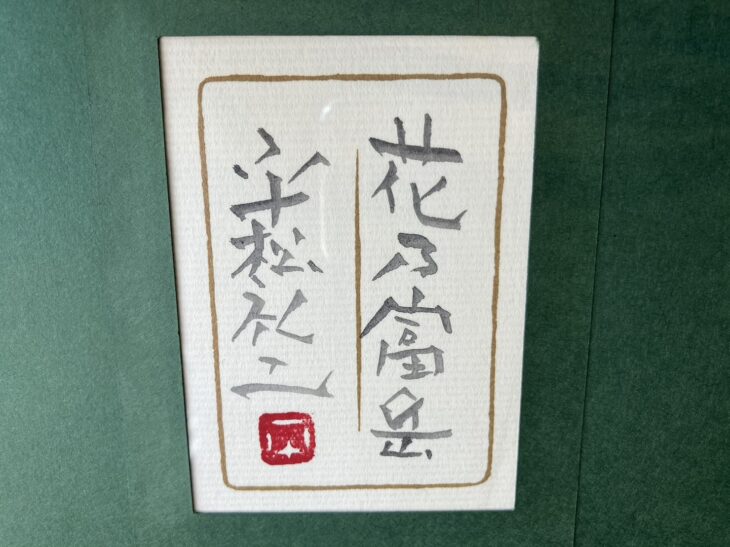 花乃富岳
平松礼二